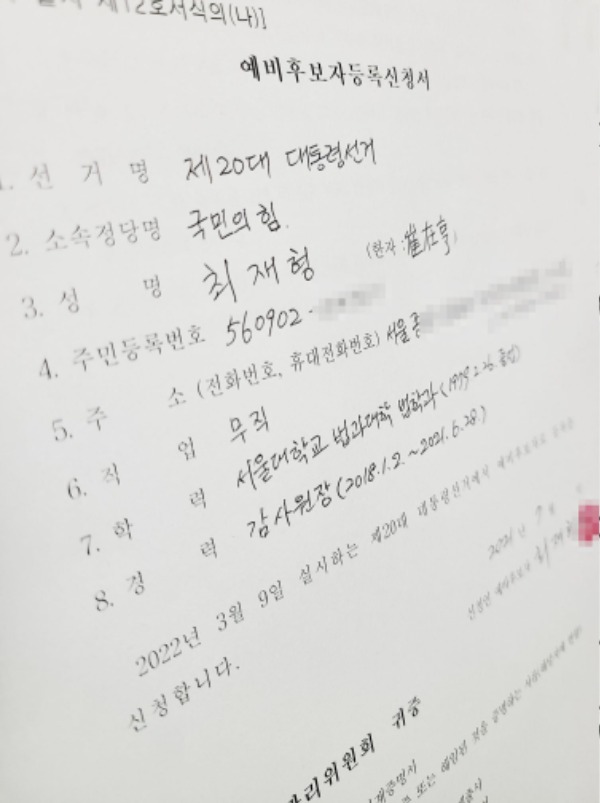 제12호서식의(나)]
예비후보자등록신청서
1. 선 거 명 제20대 대통령선거
2. 소속정당명 국민의힘.
3. 성 명 최재형 (한자 : 崔在亨)
4. 주민등록번호 560902-
5. 주 소 (전화번호, 휴대전화번호) 서울 종
6. 직 업 무직
7. 학 력 서울대학교 법과대학 법학과 (1979. 2. 26. 졸업)
8. 경 력 감사원장 (2018. 1. 2. ~ 2021. 6. 28.)
2022년 3월 9일 실시하는 제20대 대통령선거에서 예비후보자로
신청합니다.
2021 년 7 월
신청인 예비후보자 최재형
관리위원회 귀중